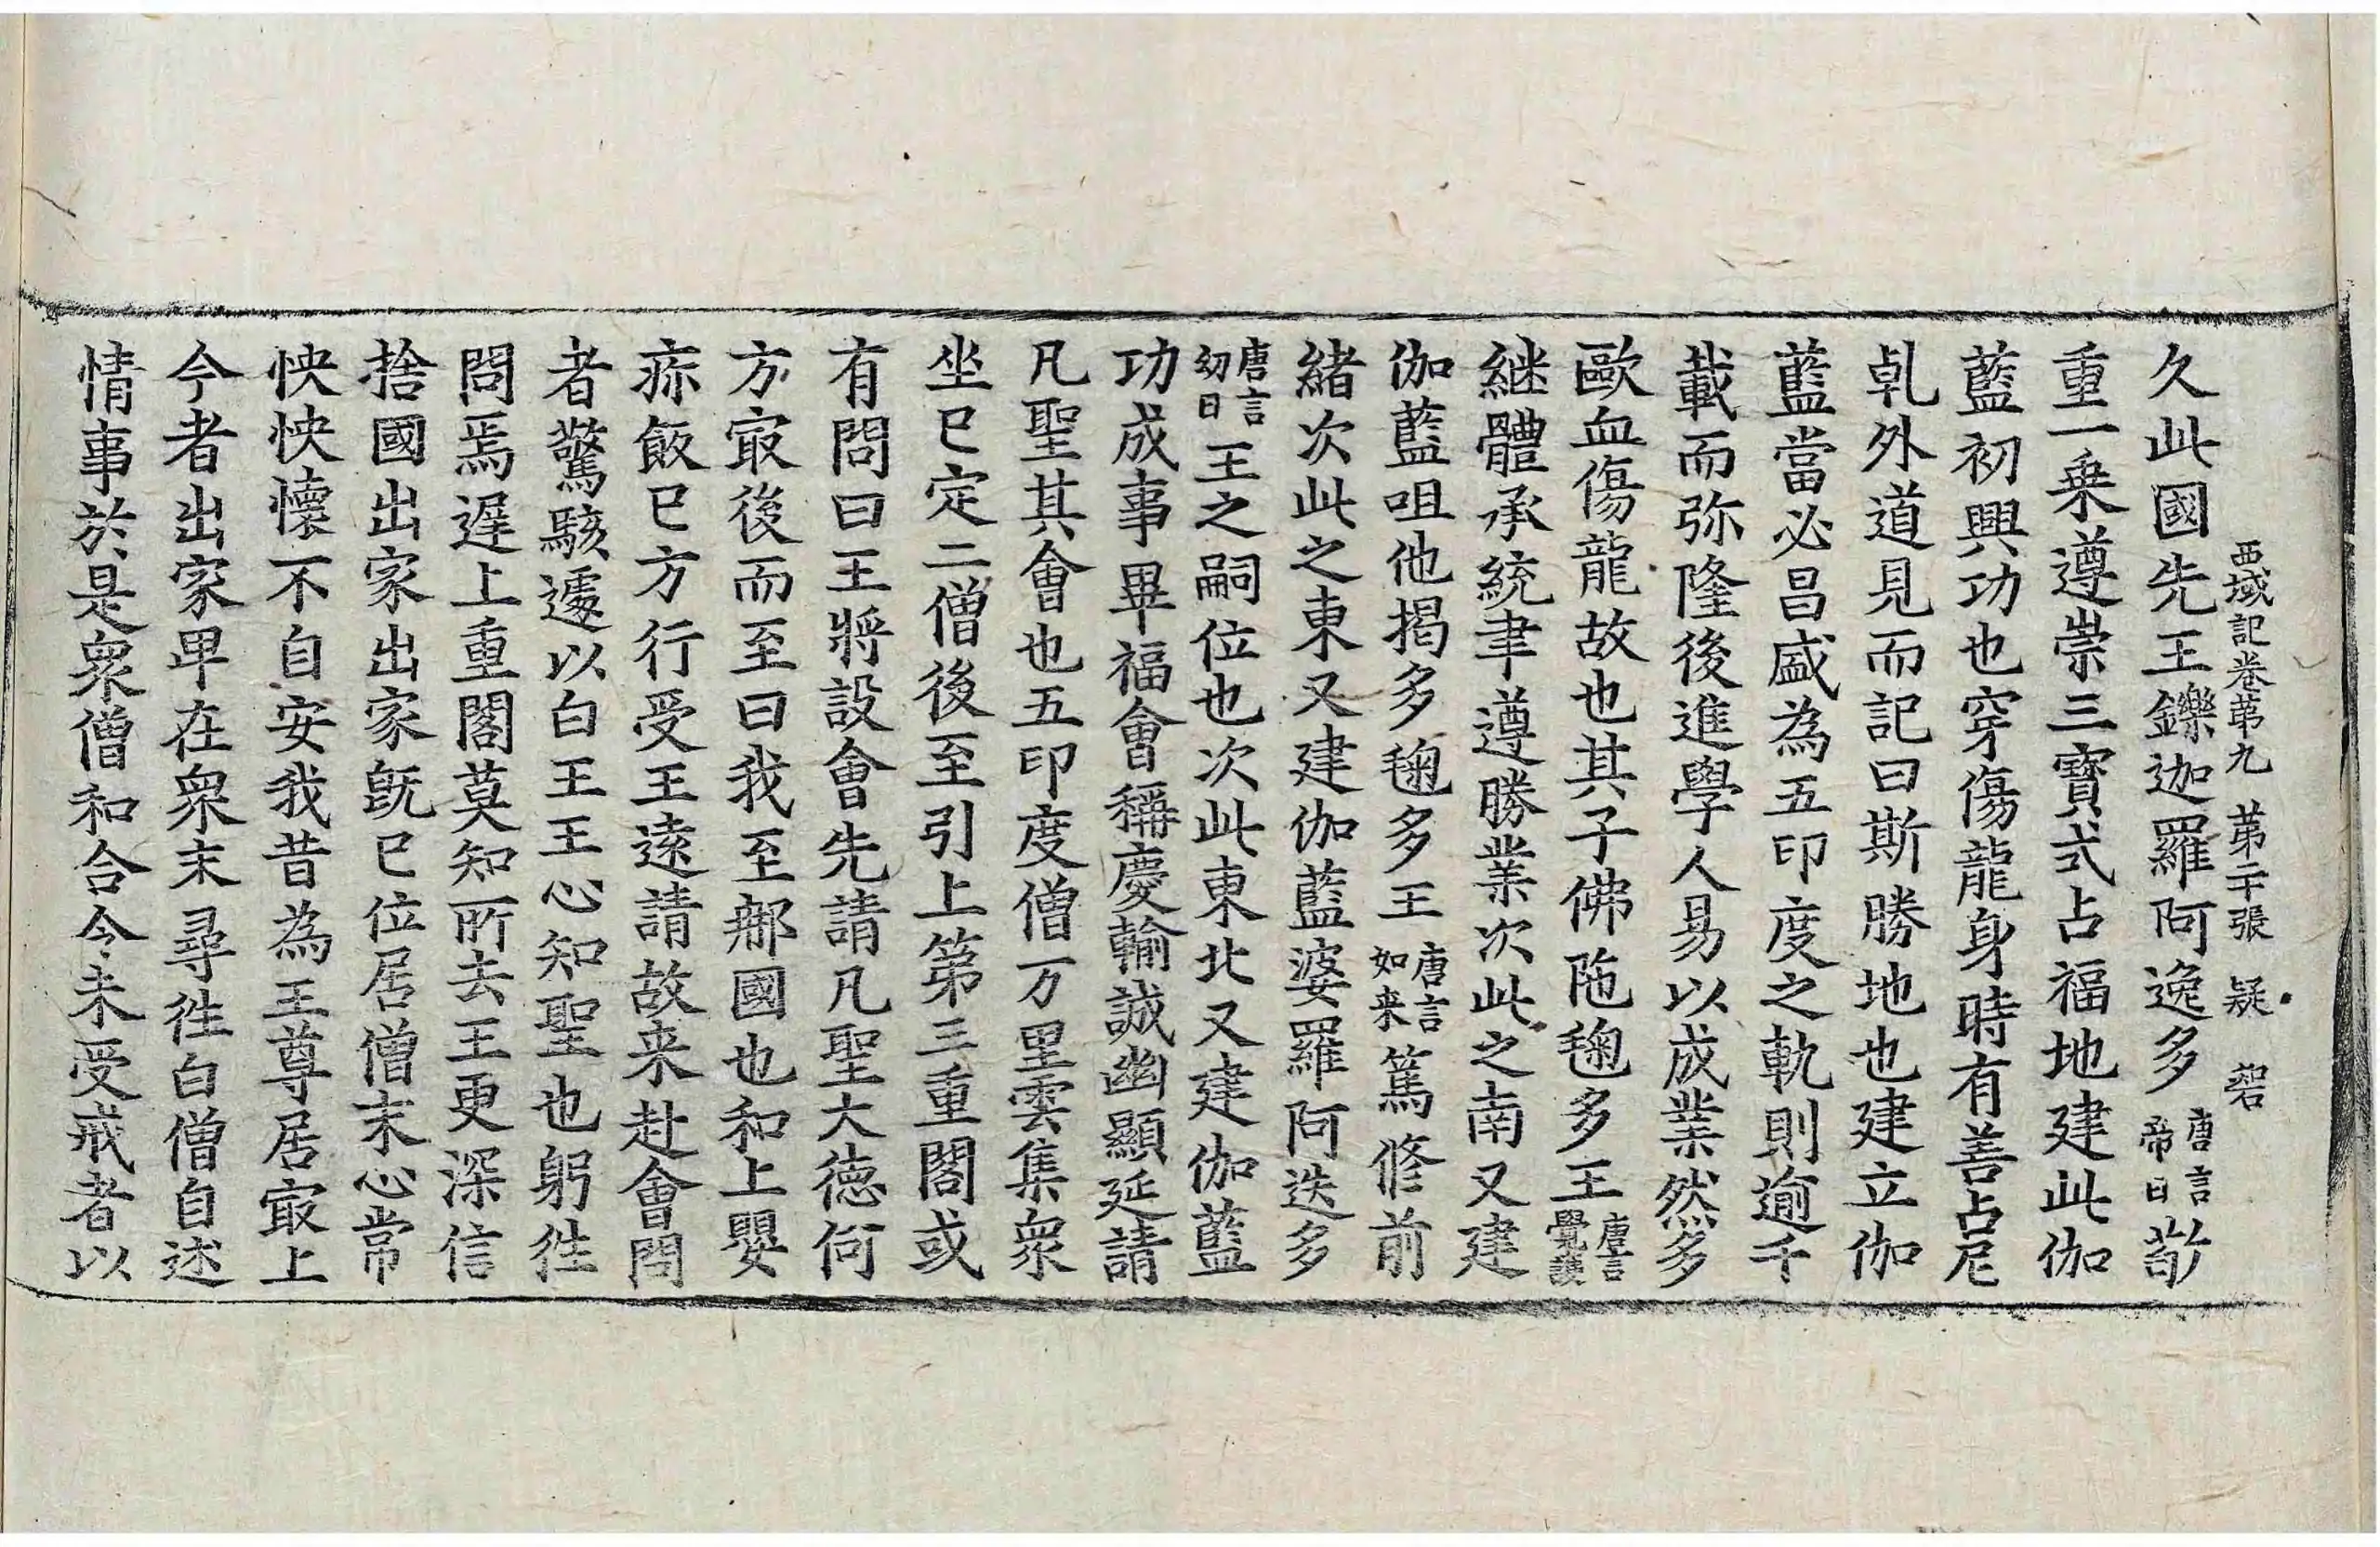 西域記卷苐九　苐二十張　疑
久此國先王鑠迦羅阿逸多唐言帝日敬
重一乗遵崇三寶式占福地建此伽
藍初興功也穿傷龍身時有善占尼
乹外道見而記曰斯勝地也建立伽
藍當必昌盛為五印度之軌則逾千
載而弥隆後進學人易以成業然多
歐血傷龍故也其子佛陁毱多王唐言覺護
継體承統聿遵勝業次此之南又建
伽藍呾他揭多毱多王唐言如来篤修前
緒次此之東又建伽藍婆羅阿迭多
唐言㓜日王之嗣位也次此東北又建伽藍
功成事畢福會稱慶輸誠幽顯延請
凡聖其會也五印度僧万里雲集衆
坐已定二僧後至引上第三重閣或
有問曰王將設會先請凡聖大徳何
方㝡後而至曰我至𨙻國也和上嬰
疹飯已方行受王逺請故来赴會問
者驚駭遽以白王王心知聖也躬徃
問焉遲上重閣莫知所去王更深信
捨國出家出家旣已位居僧末心常
怏怏懷不自安我昔為王尊居㝡上
今者出家卑在衆末尋徃白僧自述
情事於是衆僧和合令未受戒者以